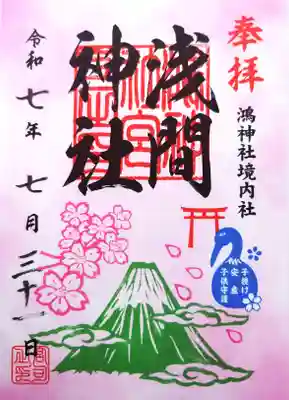 奉拝
鴻神社境内社
浅間
神社
令和七年七月三十一日
子授け
安産
子供守護